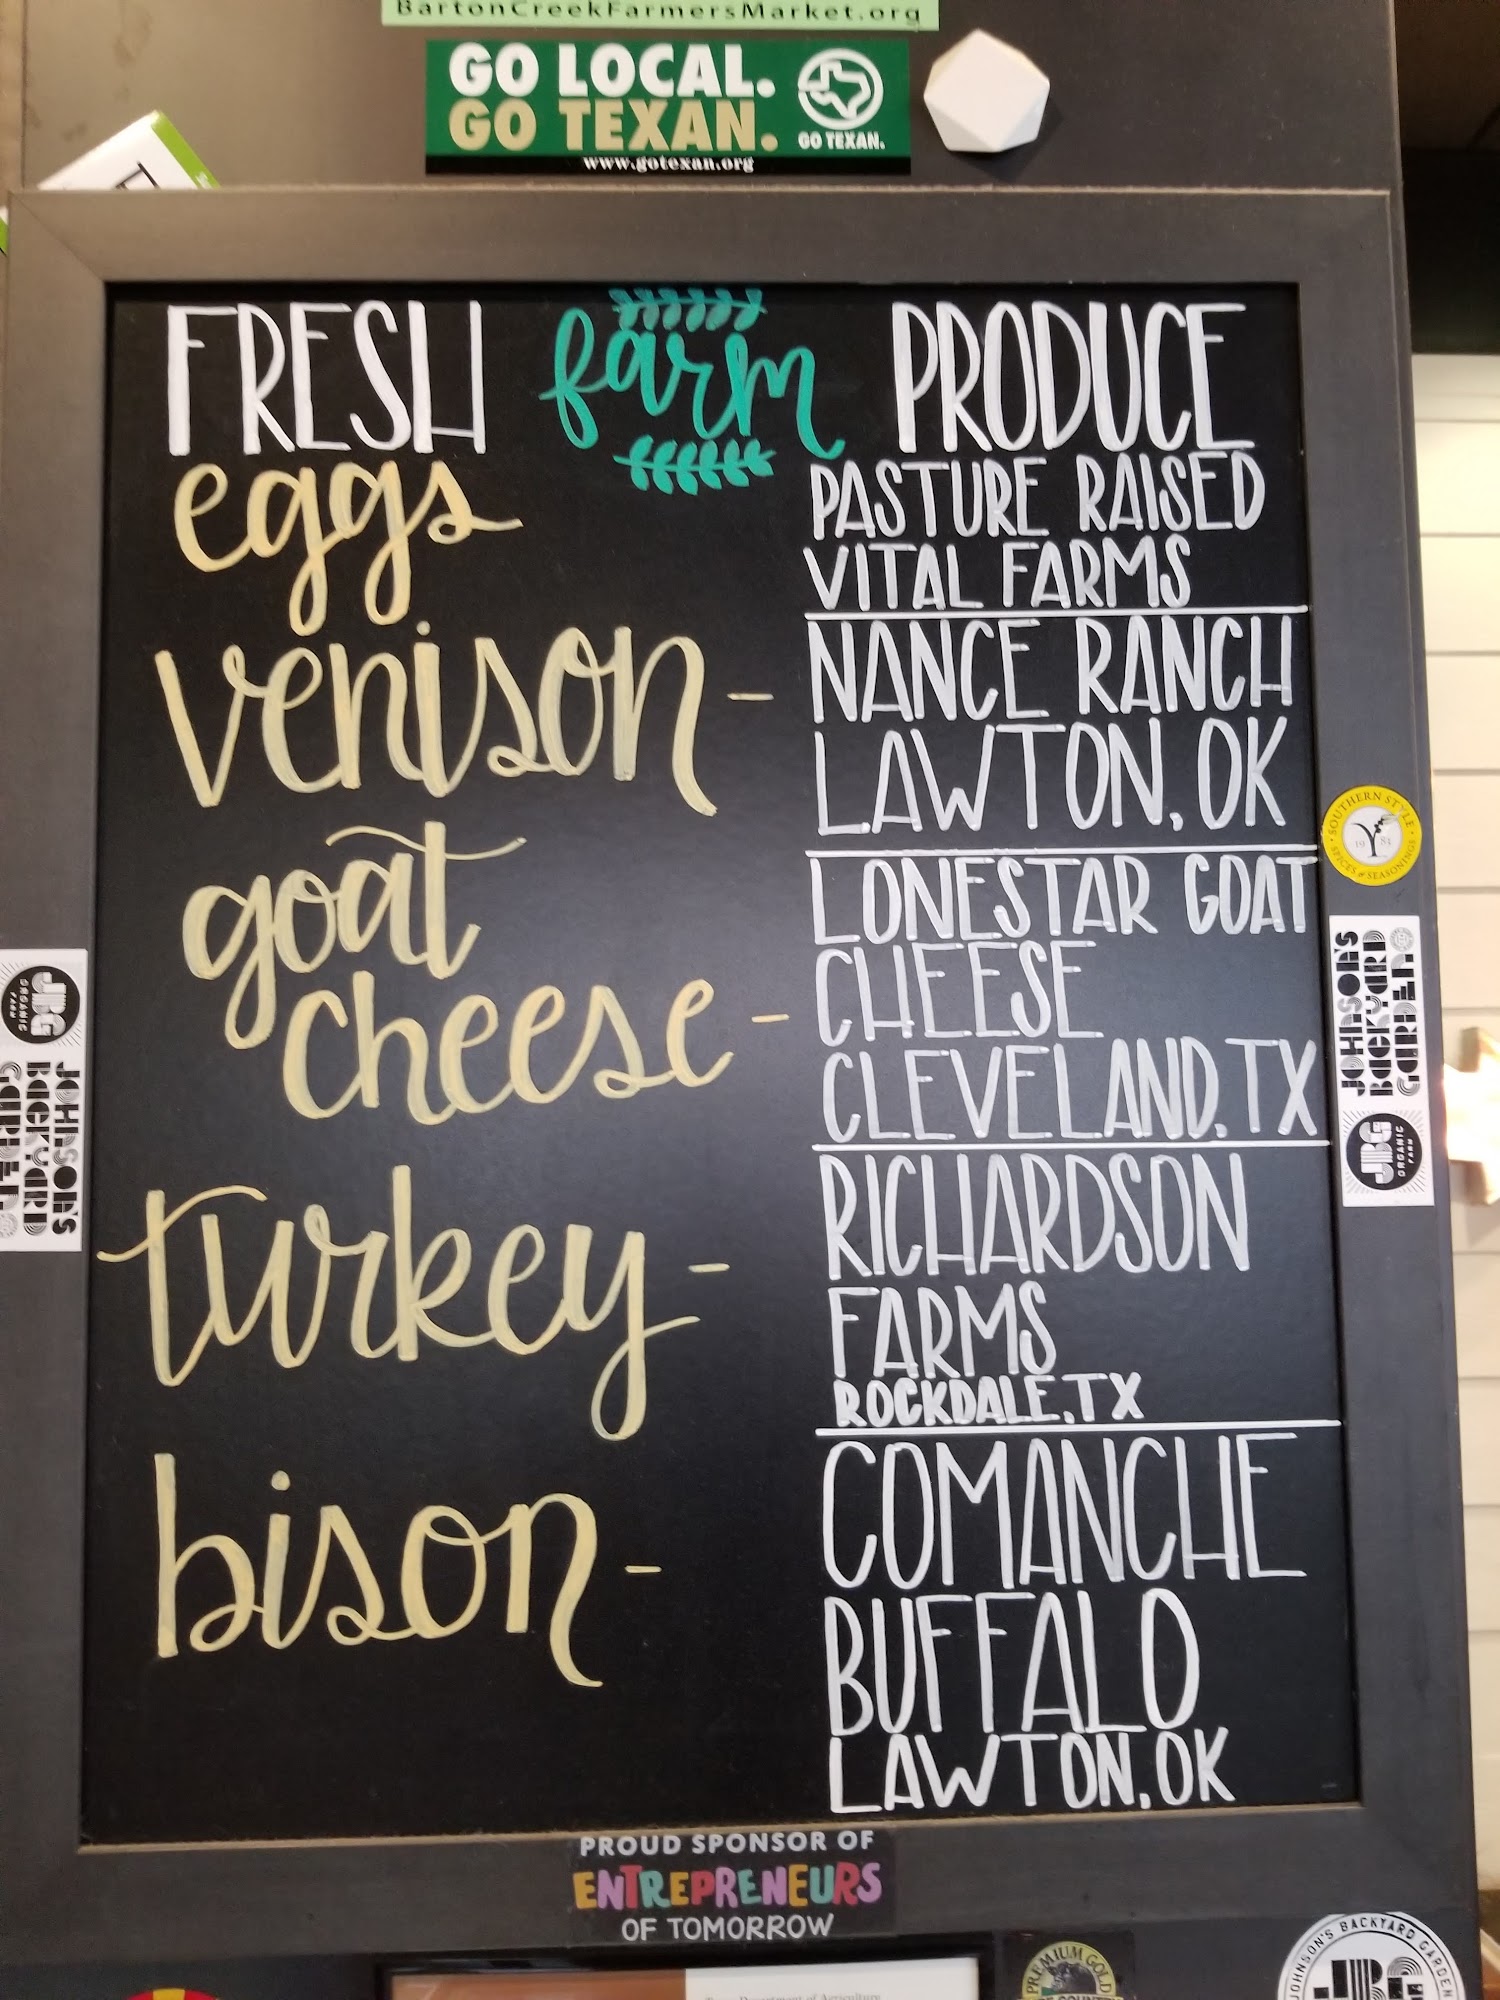 BartonCreekFarmersMarket.org
GO LOCAL.
GO TEXAN.
GO TEXAN.
www.gotexan.org
FRESH farm PRODUCE
eggs
PASTURE RAISED
VITAL FARMS
venison -
NANCE RANCH
LAWTON, OK
goat
cheese -
LONESTAR GOAT
CHEESE
CLEVELAND, TX
turkey -
RICHARDSON
FARMS
ROCKDALE, TX
bison -
COMANCHE
BUFFALO
LAWTON, OK
SOUTHERN STYLE
1983
SPICES & SEASONINGS
JOHNSON'S
BACKYARD
GARDEN
JBG
ORGANIC
FARM
JBG
ORGANIC
FARM
JOHNSON'S
BACKYARD
GARDEN
PROUD SPONSOR OF
ENTREPRENEURS
OF TOMORROW
PREMIUM GOLD
JOHNSON'S BACKYARD GARDEN
JBG